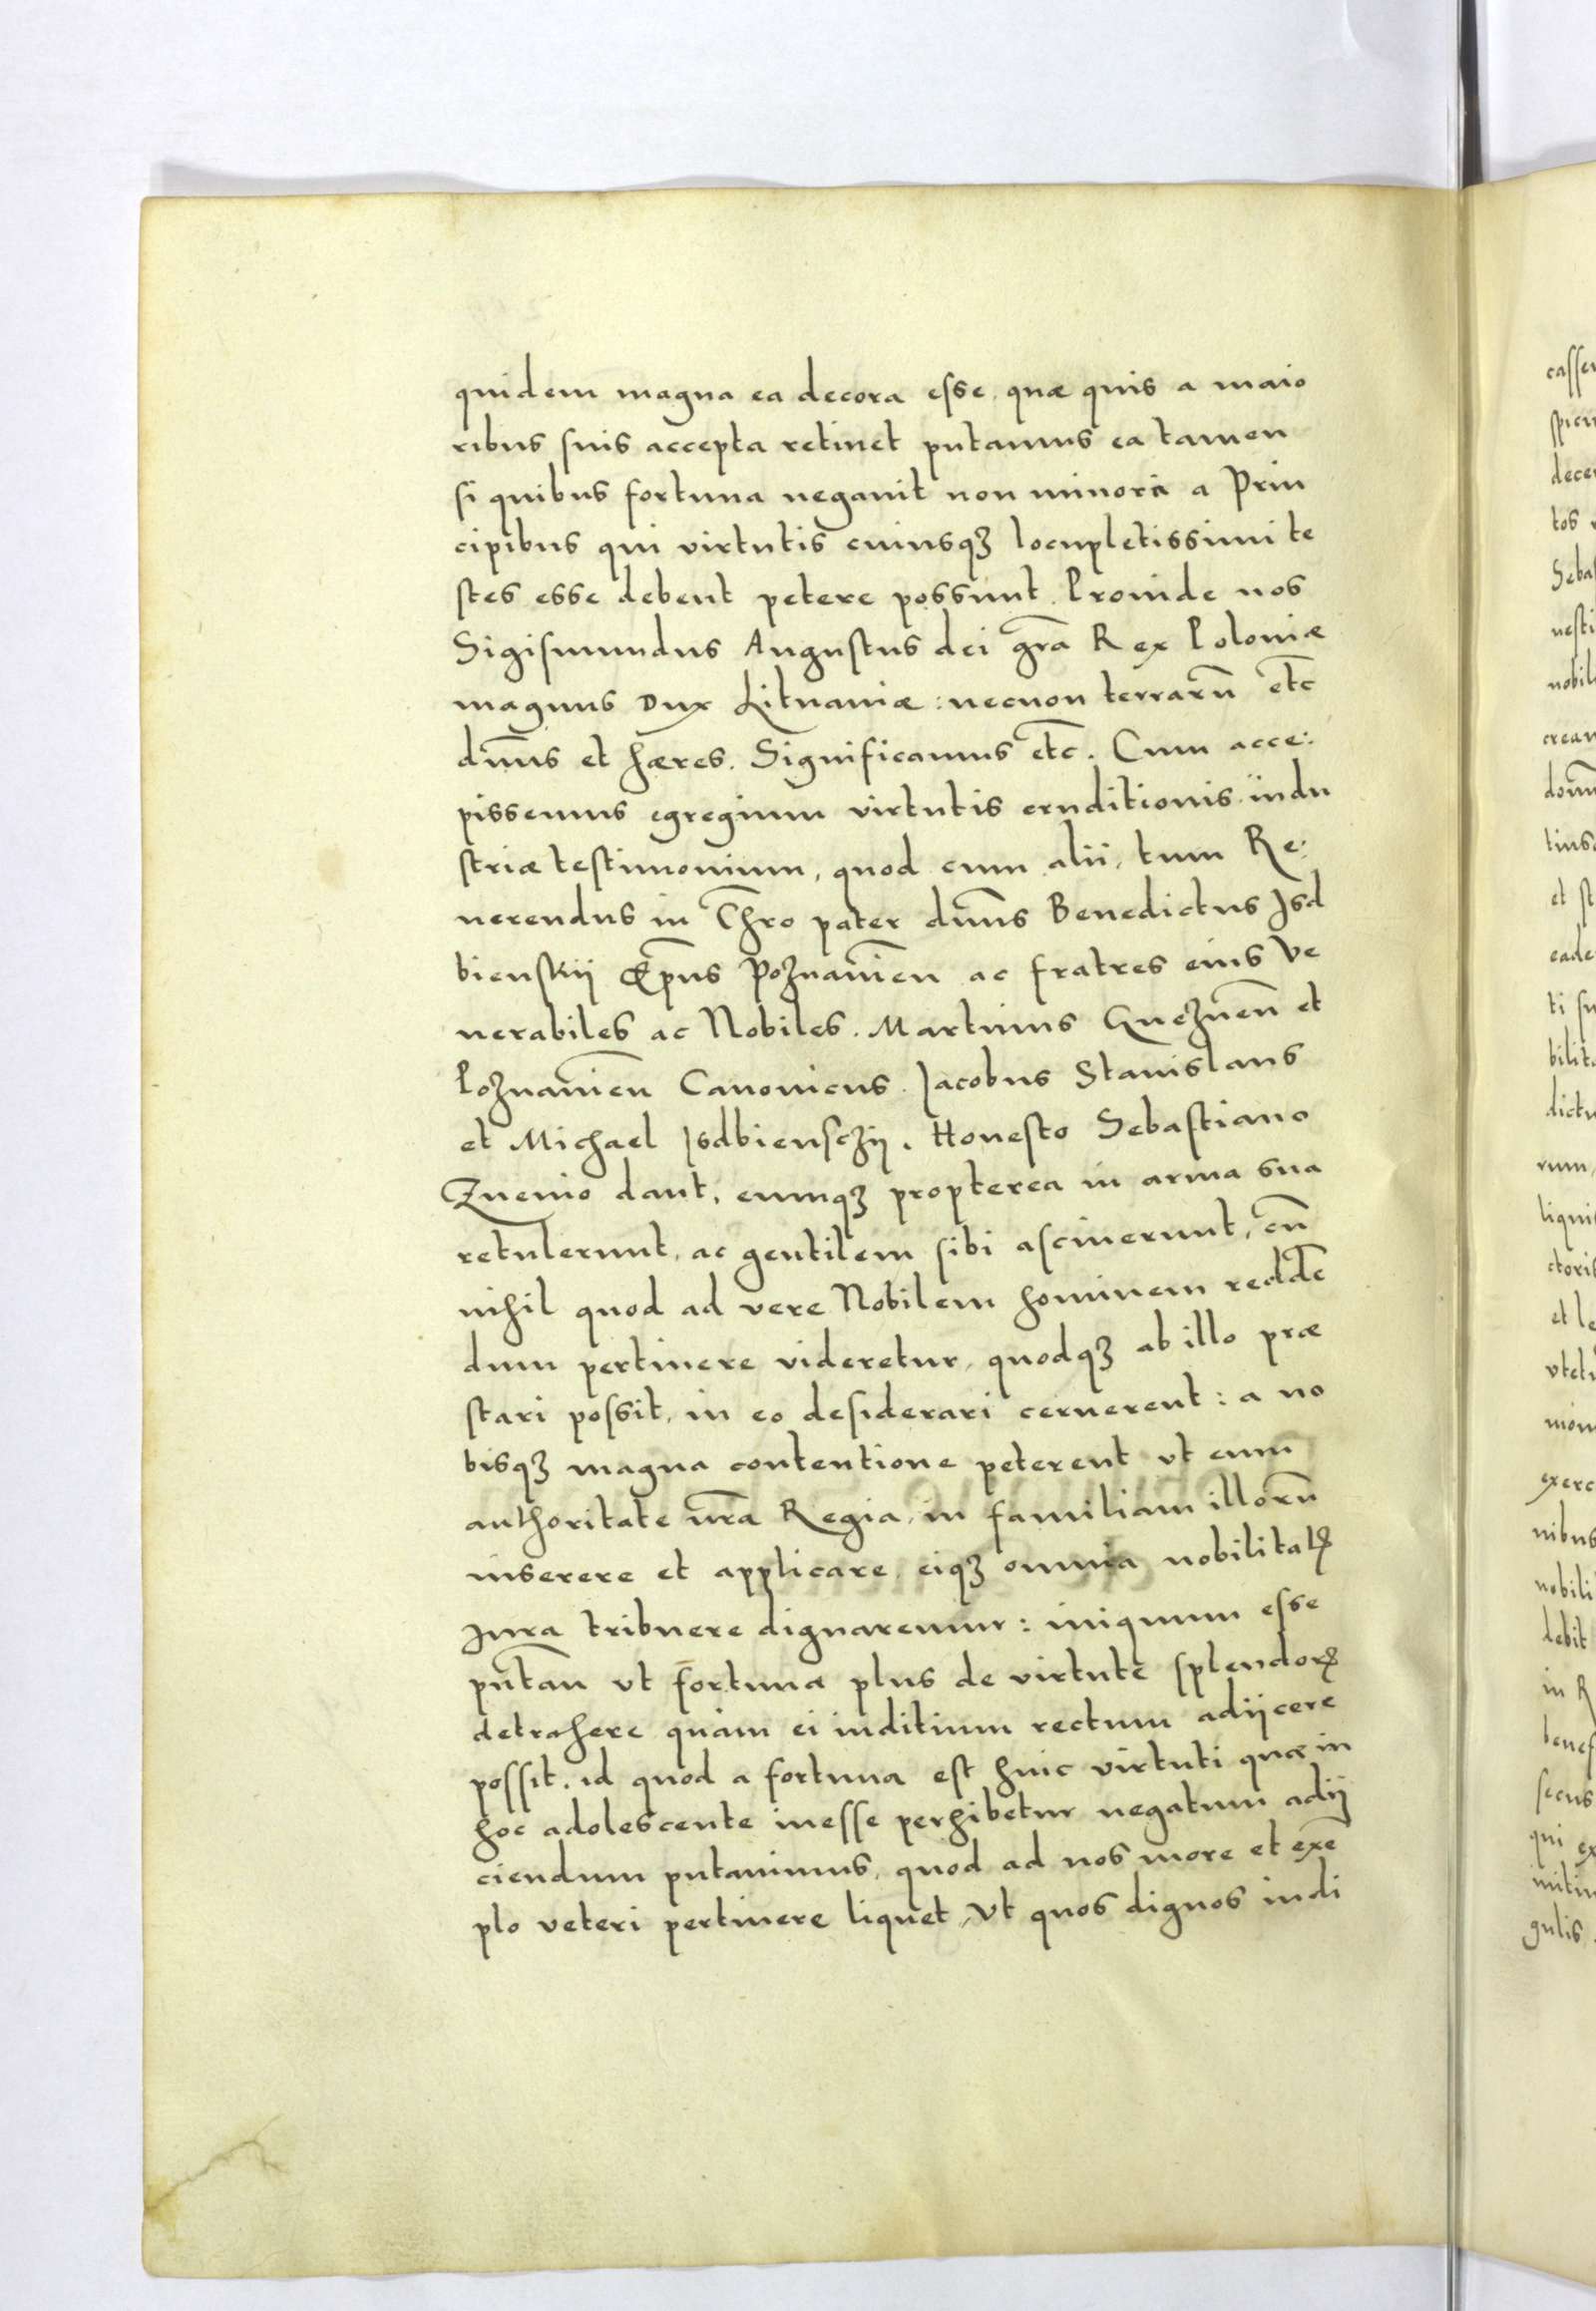 quidem magna ea decora esse, quæ quis a maio
ribus suis accepta retinet putamus ea tamen
si quibus fortuna negauit non minora a Prin
cipibus qui virtutis cuiusqꝫ locupletissimi te
stes esse debent petere possunt. Proinde nos
Sigismundus Augustus dei gr̃a Rex Poloniæ
magnus Dux Lituaniæ: necnon terrarũ etc̃
dñus et hæres. Significamus etc̃. Cum acce:
pissemus egregium virtutis eruditionis indu
striæ testimonium, quod cum alii, tum Re:
uerendus in Chr̃o pater dñus Benedictus Isd
bienskij Ep̃us Poznanieñ ac fratres eius Ve
nerabiles ac Nobiles. Martinus Gnezneñ et
Poznanieñ Canonicus. Jacobus Stanislaus
et Michael Isdbiensczij. Honesto Sebastiano
dant, eumqꝫ propterea in arma sua
retulerunt, ac gentilem sibi asciuerunt, cũ
nihil quod ad vere Nobilem hominem reddẽ
dum pertinere videretur, quodqꝫ ab illo præ
stari possit, in eo desiderari cernerent: a no
bisqꝫ magna contentione peterent vt eum
authoritate nr̃a Regia, in familiam illorũ
inserere et applicare, eiqꝫ omnia nobilitatꝭ
Jura tribuere dignaremur: iniquum esse
put̃an vt fortuna plus de virtute splendorꝭ
detrahere quam ei iuditium rectum adijcere
possit. id quod a fortuna est huic virtuti quæ in
hoc adolescente inesse perhibetur negatum adij
ciendum putauimus, quod ad nos more et exẽ
plo veteri pertinere liquet, Vt quos dignos iudi